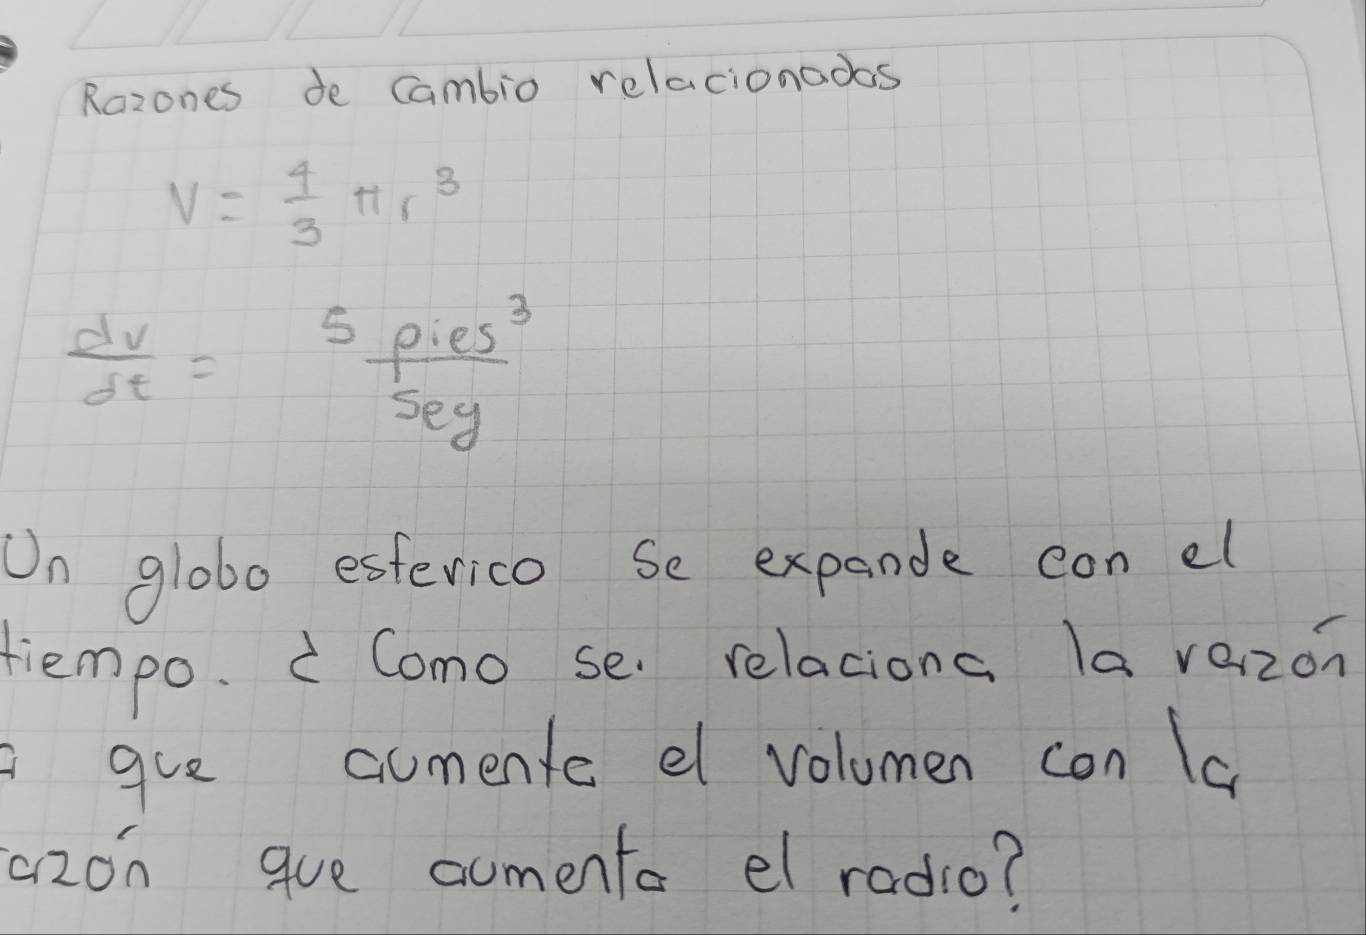 Razones de cambio relacionadas
V = 4/3 π r³
dv/dt = 5 pies³/seg
Un globo esferico se expande con el
tiempo. ¿ Como se. relaciona la razón
a que aumenta el volumen con la
razón que aumenta el radio?